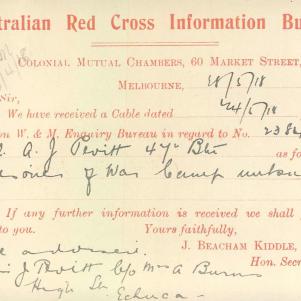 tralian Red Cross Information Bu
Colonial Mutual Chambers, 60 Market Street,
Melbourne, 28/5/18
Sir,
We have received a Cable dated 24/5/18
on W. & M. Enquiry Bureau in regard to No. 2384
A. J. Pevitt 47th Btn as fo
risoner of War Camp unkno
If any further information is received we shall
e advised. Yours faithfully,
J. Beacham Kiddle,
J Pevitt c/o Mrs A Burns Hon. Secre
High St. Echuca